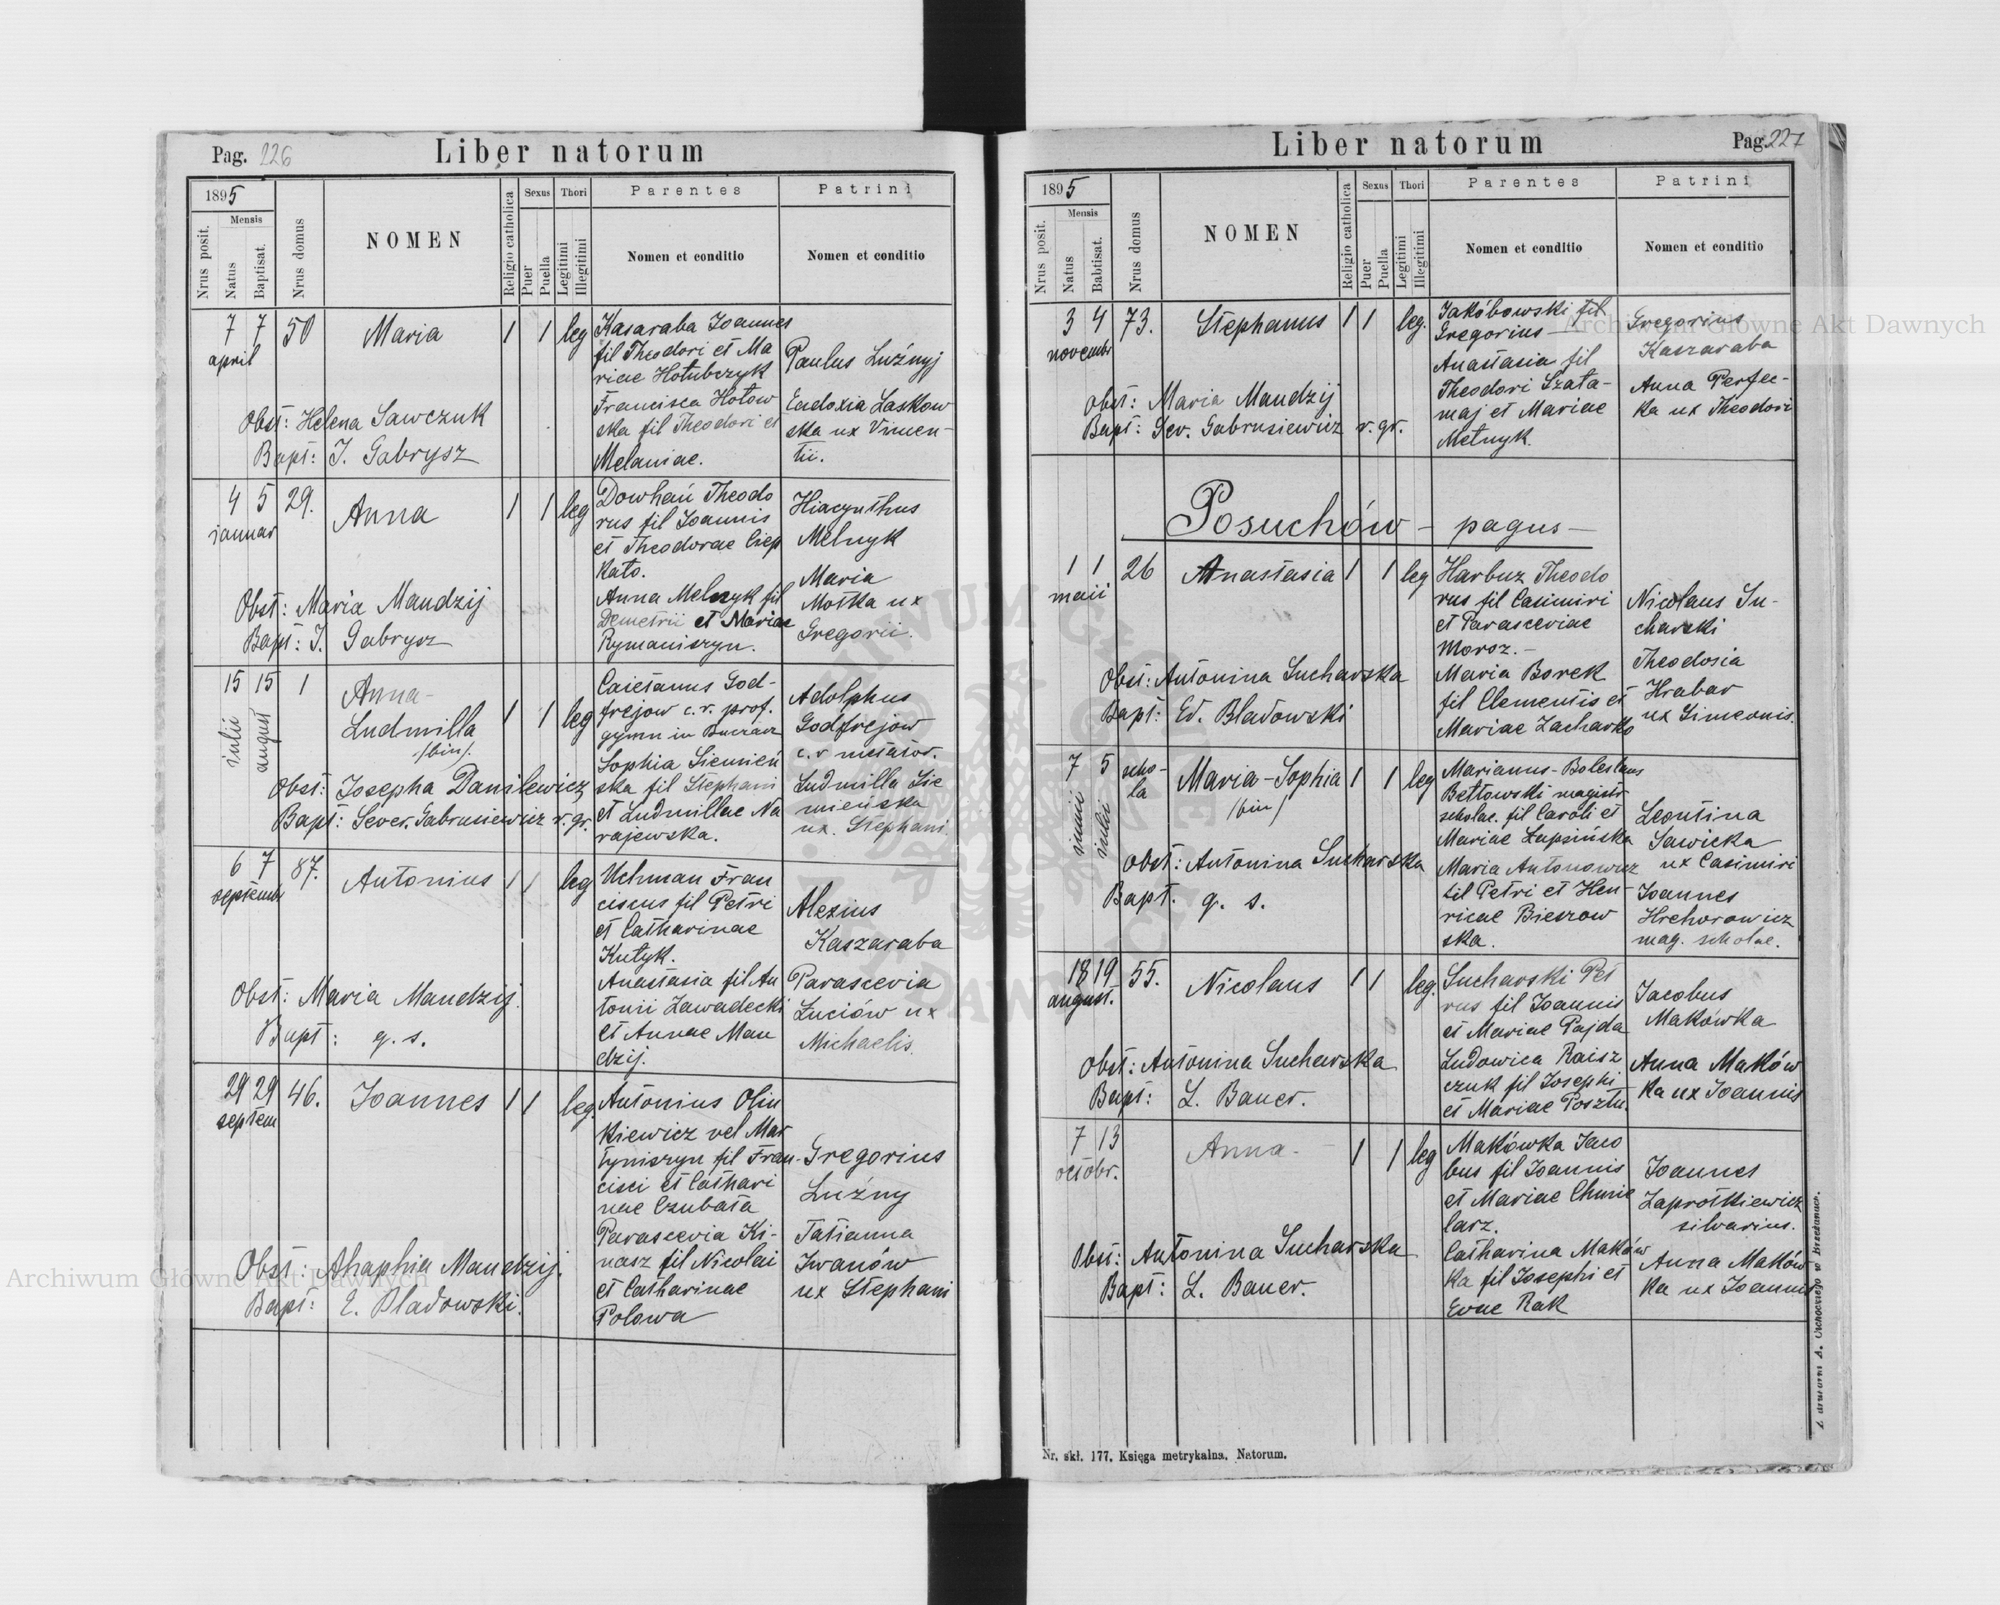 Pag. 226 Liber natorum
1895
Nrus posit.
Mensis
Natus
Baptisat.
Nrus domus
NOMEN
Religio catholica
Sexus
Puer
Puella
Thori
Legitimi
Illegitimi
Parentes
Nomen et conditio
Patrini
Nomen et conditio
7 7 50 Maria 1 1 leg
april
Obst: Helena Sawczuk
Bapt: J. Gabrysz
Kasaraba Joannes
fil Theodori et Ma
riae Hołubczyk
Francisca Hołow
ska fil Theodori et
Melaniae.
Paulus Luźnyj
Eudoxia Laskow
ska ux Vincen-
tii.
4 5 29. Anna 1 1 leg
januar
Obst: Maria Mandzij
Bapt: J. Gabrysz
Dowhań Theodo
rus fil Joannis
et Theodorae Ciep
kato.
Anna Melnyk fil
Demetrii et Mariae
Rymaniszyn.
Hiacynthus
Melnyk
Maria
Mostka ux
Gregorii.
15 15 1 Anna-
Ludmilla 1 1 leg
(bin).
julii
august
Obst: Josepha Danilewicz
Bapt: Sever. Gabrusiewicz r. gr.
Caietanus God-
frejow c. r. prof.
gymn in Buczacz
Sophia Siemień
ska fil Stephani
et Ludmillae Na
rajewska.
Adolphus
Godfrejow
c. r metator.
Ludmilla Sie
mieńska
ux. Stephani
6 7 87. Antonius 1 1 leg
septemb
Obst: Maria Mandzij.
Bapt: q. s.
Uchman Fran
ciscus fil Petri
et Catharinae
Kutyk.
Anastasia fil An
tonii Zawadecki
et Annae Man
dzij.
Alexius
Kaszaraba
Parascevia
Luciów ux
Michaelis.
29 29 46. Joannes 1 1 leg.
septem
Obst: Ahaphia Mandzij.
Bapt: E. Bladowski.
Antonius Olin
kiewicz vel Mar
tyniszyn fil Fran-
cisci et Cathari
nae Czubata
Parascevia Ki-
nasz fil Nicolai
et Catharinae
Polowa
Gregorius
Luźny
Tatianna
Iwanów
ux Stephani
Liber natorum Pag. 227
1895
Nrus posit.
Mensis
Natus
Babtisat.
Nrus domus
NOMEN
Religio catholica
Sexus
Puer
Puella
Thori
Legitimi
Illegitimi
Parentes
Nomen et conditio
Patrini
Nomen et conditio
3 4 73. Stephanus 1 1 leg.
novembr
Obst: Maria Mandzij
Bapt: Sev. Gabrusiewicz r. gr.
Jakóbowski fil
Gregorius
Anastasia fil
Theodori Szata-
maj et Mariae
Melnyk.
Gregorius
Kaszaraba
Anna Perfec-
ka ux Theodori
Posuchów - pagus -
1 1 26 Anastasia 1 1 leg
maii
Obst: Antonina Sucharska
Bapt: Ed. Bladowski
Harbuz Theodo
rus fil Casimiri
et Parasceviae
Moroz.-
Maria Borek
fil Clementis et
Mariae Zacharko
Nicolaus Su-
charski
Theodosia
Hrabar
ux Simeonis.
7 5 scho-
la Maria-Sophia 1 1 leg
(bin)
junii
julii
Obst: Antonina Sucharska
Bapt. q. s.
Marianus-Boleslaus
Bettowski magistr
scholae. fil Caroli et
Mariae Łapsińska
Maria Antonowicz
fil Petri et Hen-
ricae Bieszow
ska.
Leontina
Sawicka
ux Casimiri
Joannes
Hrehorowicz
mag. scholae.
18 19 55. Nicolaus 1 1 leg.
august.
Obst: Antonina Sucharska
Bapt: L. Bauer.
Sucharski Pet
rus fil Joannis
et Mariae Pajda
Ludowica Raisz
czuk fil Josephi
et Mariae Posztu.
Jacobus
Makówka
Anna Maków
ka ux Joannis
7 13 Anna- 1 1 leg
octobr.
Obst: Antonina Sucharska
Bapt: L. Bauer.
Makówka Jaco
bus fil Joannis
et Mariae Chmie
larz.
Catharina Maków
ka fil Josephi et
Evae Rak
Joannes
Zaprostkiewicz
silvarius.
Anna Maków
ka ux Joannis
Nr. skł. 177. Księga metrykalna. Natorum.
Archiwum Główne Akt Dawnych
Archiwum Główne Akt Dawnych